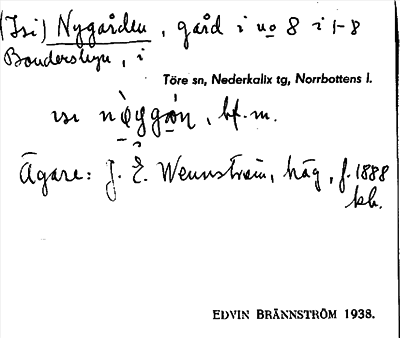 (Isi) Nygården, gård i no 8 i 1-8
Bondersbyn, i
Töre sn, Nederkalix tg, Norrbottens l.
bf. m.
Ägare: J. E. Wennström, häg, f. 1888
kh.
EDVIN BRÄNNSTRÖM 1938.